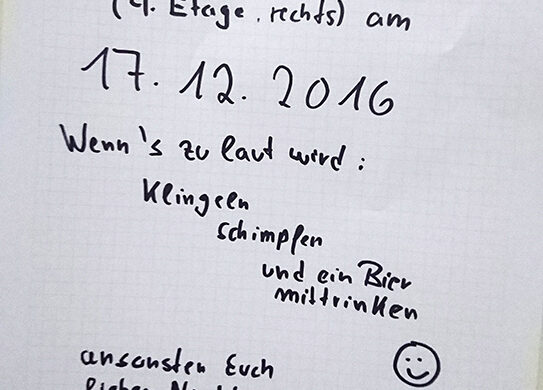 (4. Etage, rechts) am
17.12.2016
Wenn's zu laut wird:
Klingeln
schimpfen
und ein Bier
mittrinken
ansonsten Euch